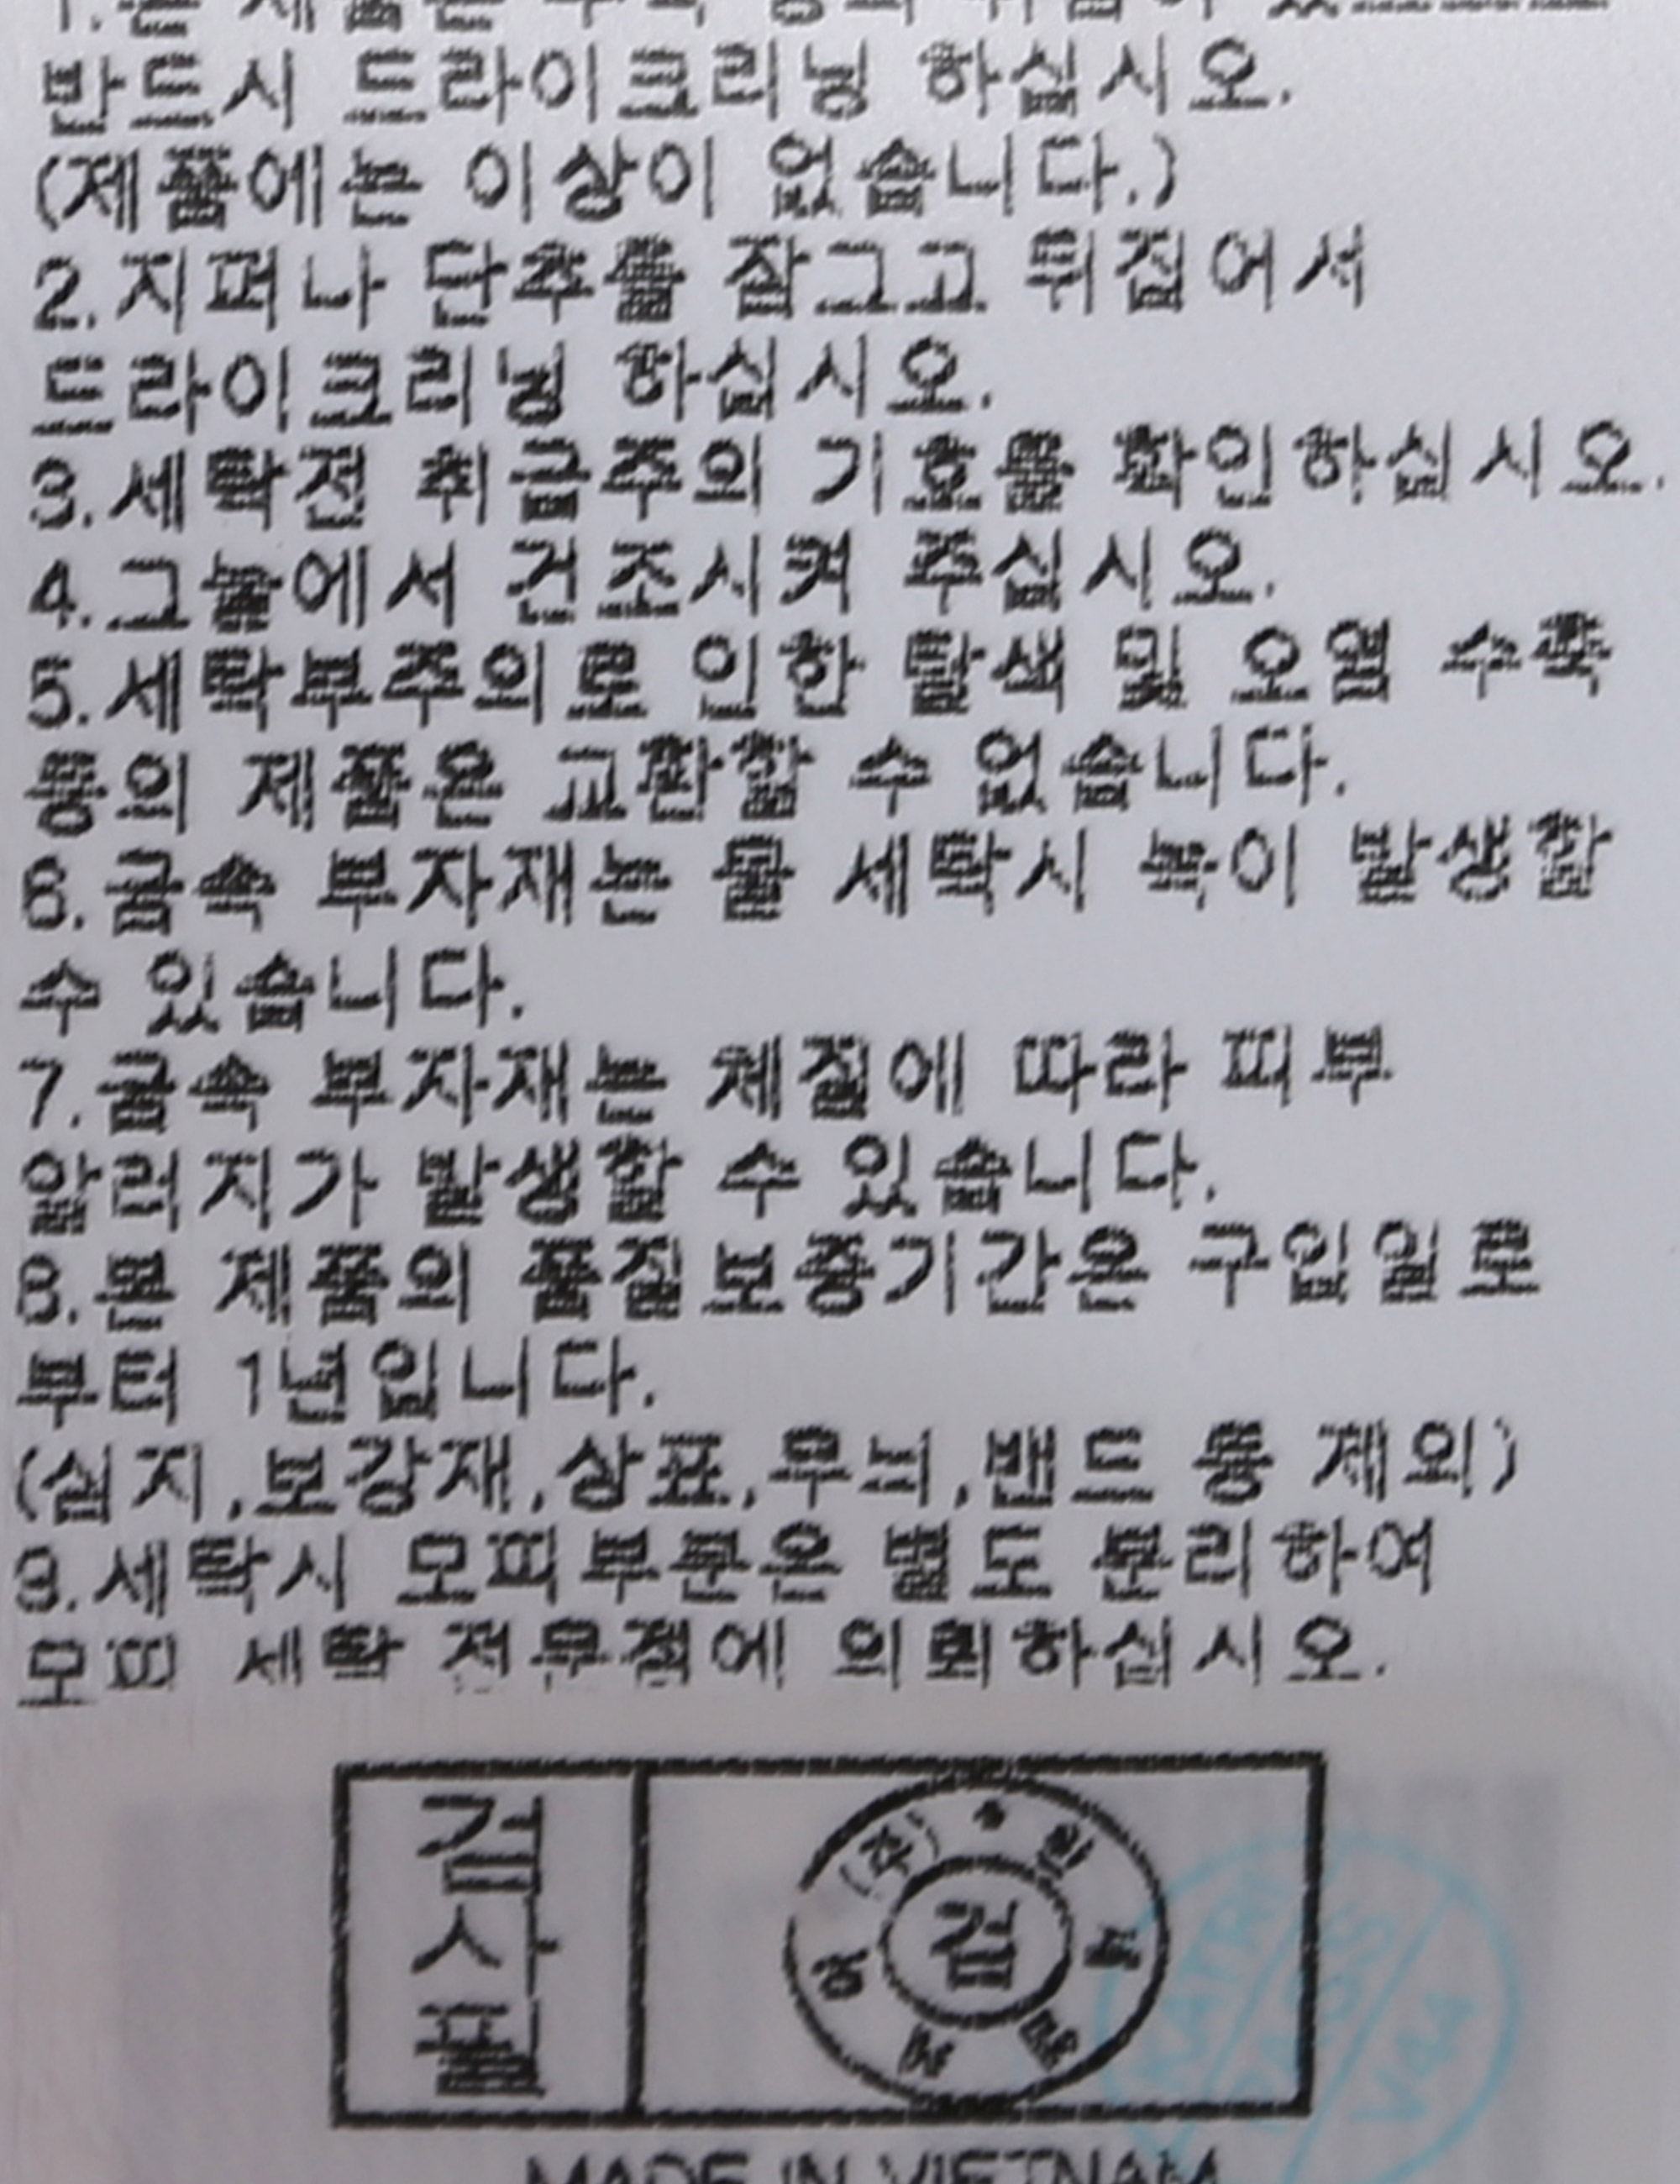 반드시 드라이크리닝 하십시오.
(제품에는 이상이 없습니다.)
2.지퍼나 단추를 잠그고 뒤집어서
드라이크리닝 하십시오.
3.세탁전 취급주의 기호를 확인하십시오.
4.그늘에서 건조시켜 주십시오.
5.세탁부주의로 인한 탈색 및 오염 수축
등의 제품은 교환할 수 없습니다.
6.금속 부자재는 물 세탁시 녹이 발생할
수 있습니다.
7.금속 부자재는 체질에 따라 피부
알러지가 발생할 수 있습니다.
8.본 제품의 품질보증기간은 구입일로
부터 1년입니다.
(심지,보강재,상표,무늬,밴드 등 제외)
9.세탁시 모피부분은 별도 분리하여
모피 세탁 전문점에 의뢰하십시오.
검사필
(주)
검
MADE IN VIETNAM